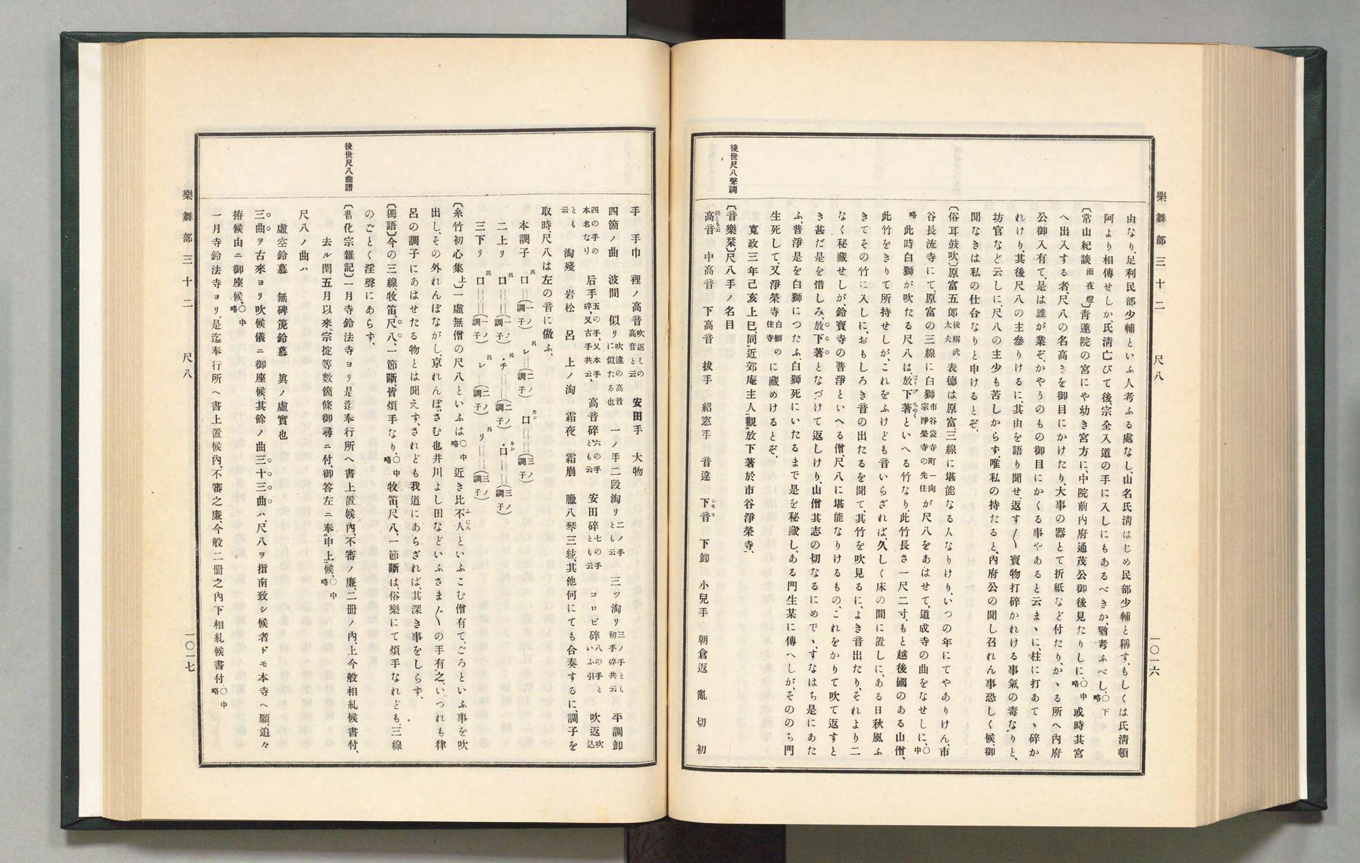 樂舞部三十二 尺八
一〇一六
由なり、足利民部少輔といふ人考ふる處なし、山名氏淸はじめ民部少輔と稱す、もしくは氏淸頓
阿より相傳せしか、氏淸亡びて後、宗全入道の手に入しにもあるべきか、猶考ふべし、〇下略
〔常山紀談 雨夜燈〕靑蓮院の宮にや幼き宮方に、中院前内府通茂公御後見たりしに、〇中略 或時其宮
へ出入する者、尺八の名高きを御目にかけたり、大事の器とて折紙など付たり、かゝる所へ内府
公御入有て、是は誰が業ぞ、かやうのもの御目にかくる事やあると云まゝに、柱に打あてゝ碎か
れけり、其後尺八の主參りけるに、其由を語り聞せ、返す〳〵寶物打碎かれける事氣の毒なりと、
坊官など云しに、尺八の主少も苦しからず、唯私の持たると、内府公の聞し召れん事恐しく候、御
聞なきは私の仕合なりと申けるとぞ、
〔俗耳鼓吹〕原富五郎 後稱武太夫 表德は原富三線に堪能なる人なりけり、いつの年にてやありけん、市
谷長流寺にて、原富の三線に白獅 市谷袋寺町一向宗淨榮寺の先住 が尺八をあはせて、道成寺の曲をなせしに、〇中
略 此時白獅が吹たる尺八は、放下著といへる竹なり、此竹長さ一尺二寸、もと越後國のある山僧、
此竹をきりて所持せしが、これをふけども音いらざれば、久しく床の間に置しに、ある日秋風ふ
きてその竹に入しに、おもしろき音の出たるを聞て、其竹を吹見るに、よき音出たり、それより二
なく秘藏せしが、鈴寶寺の普淨といへる僧、尺八に堪能なりけるもの、これをかりて吹て返すと
き甚だ是を惜しみ、放下著となづけて返しけり、山僧其志の切なるにめでゝ、すなはち是にあた
ふ、普淨是を白獅につたふ、白獅死にいたるまで是を秘藏し、ある門生某に傳へしが、そののち門
生死して、又淨榮寺 白獅の住寺 に藏めけるとぞ、
寬政三年己亥上巳、同近郊庵主人觀放下著於市谷淨榮寺、
後世尺八聲調
〔音樂栞〕尺八手ノ名目
高音 中高音 下高音 拔手 紹窓手 音違 下音 下卸 小兒手 朝倉返 亂 切 初
手 手巾 裡ノ高音 吹返しの高音と云 安田手 大物
四箇ノ曲 波間 似リ 吹違の高音に似たる也 一ノ手二段淘リ 二ノ手とも云 三ツ淘リ 三ノ手とし初手碎共云 平調卸
四の手の本名なり 后手 五の手、又本手碎、又古手共云、 高音碎 六の手とも云 安田碎 七の手とも云 コロビ碎 八の手といふ引 吹返 吹込
とも云 淘殘 岩松 呂 上ノ淘 霜夜 霜崩 臈八 琴三絃、其他何にても合奏するに、調子を
取時尺八は左の音に倣ふ、
本調子 口═(一ノ調子) レ═(二ノ調子) 口═(三ノ調子)
二上り 口═(一ノ調子) ・チ═(二ノ調子) ・口═(三ノ調子)
三下り 口═(一ノ調子) レ(二ノ調子) リ═(三ノ調子)
〔糸竹初心集 上〕一虛無僧の尺八といふは、〇中略 近き比不人といふこむ僧有て、ごろといふ事を吹
出し、その外れんぼながし京れんぼ、さむ也井川、よし田などいふさま〴〵の手有之、いづれも律
呂の調子にあはせたる物とは聞えず、されども我道にあらざれば其深き事をしらず、
〔獨語〕今の三線牧笛、尺八、一節斷皆煩手なり、〇中略 牧笛尺八、一節斷は俗樂にて煩手なれども、三線
のごとく淫聲にあらず、
後世尺八曲譜
〔普化宗雜記〕一月寺鈴法寺ヨリ是迄奉行所へ書上置候内、不審ノ廉、二冊ノ内、上今般相糺候書付、
去ル閏五月以來宗掟等數箇條御尋ニ付、御答左ニ奉申上候、〇中略
尺八ノ曲ハ
虛空鈴慕 無碑箎鈴慕 眞ノ虛實也
三曲ヲ古來ヨリ吹候儀ニ御座候、其餘ノ曲三十三曲ハ、尺八ヲ指南致シ候者ドモ本寺ヘ願、追々
拵候由ニ御座候、〇中略
一月寺鈴法寺ヨリ、是迄奉行所ヘ書上置候内、不審之廉、今般二冊之内下相糺候書付、〇中略
樂舞部三十二 尺八
一〇一七